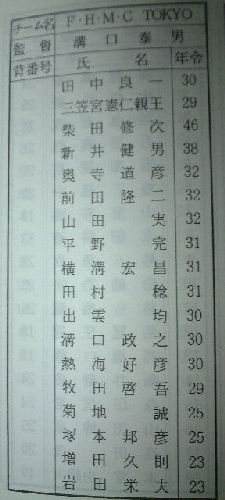 チーム名 F・H・M・C TOKYO
監督 溝口泰男
背番号 氏名 年令
田中良一 30
三笠宮憲仁親王 29
柴田修次 46
新井健男 38
奥寺道彦 32
前田隆二 32
山田実 32
平野完 31
横溝宏昌 31
田村稔 31
出雲均 30
溝口政之 30
熱海好彦 30
牧田啓吾 29
菊地誠 25
塚本邦彦 25
増田久則 23
岩田栄大 23